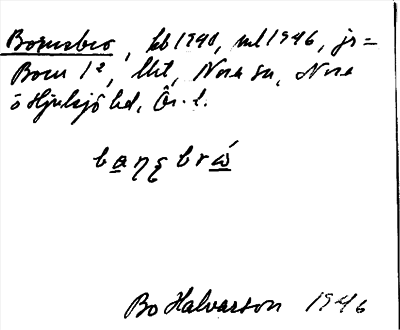 Bornsbro, kb 1940, ml 1946, js=
Born 1², lht, Nora sn, Nora
ö Hjulsjö hd, Ör. l.
Bo Halvarson 1946